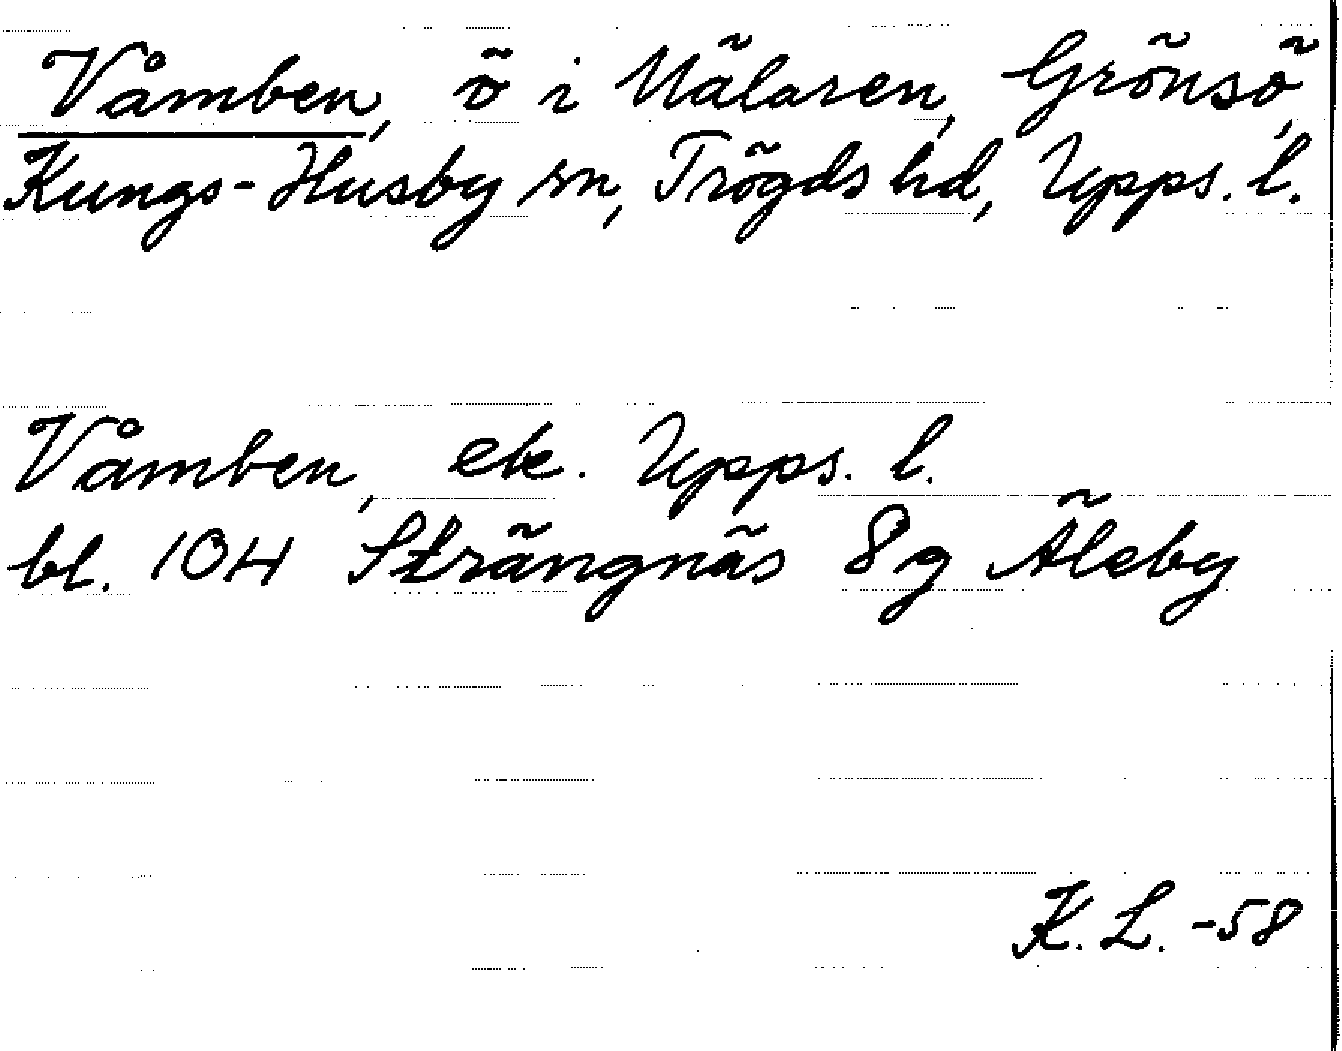 Våmben, ö i Mälaren, Grönsö,
Kungs-Husby sn, Trögds hd, Upps. l.
Våmben, ek. Upps. l.
bl. 104 Strängnäs 8g Åleby
K. L. -58